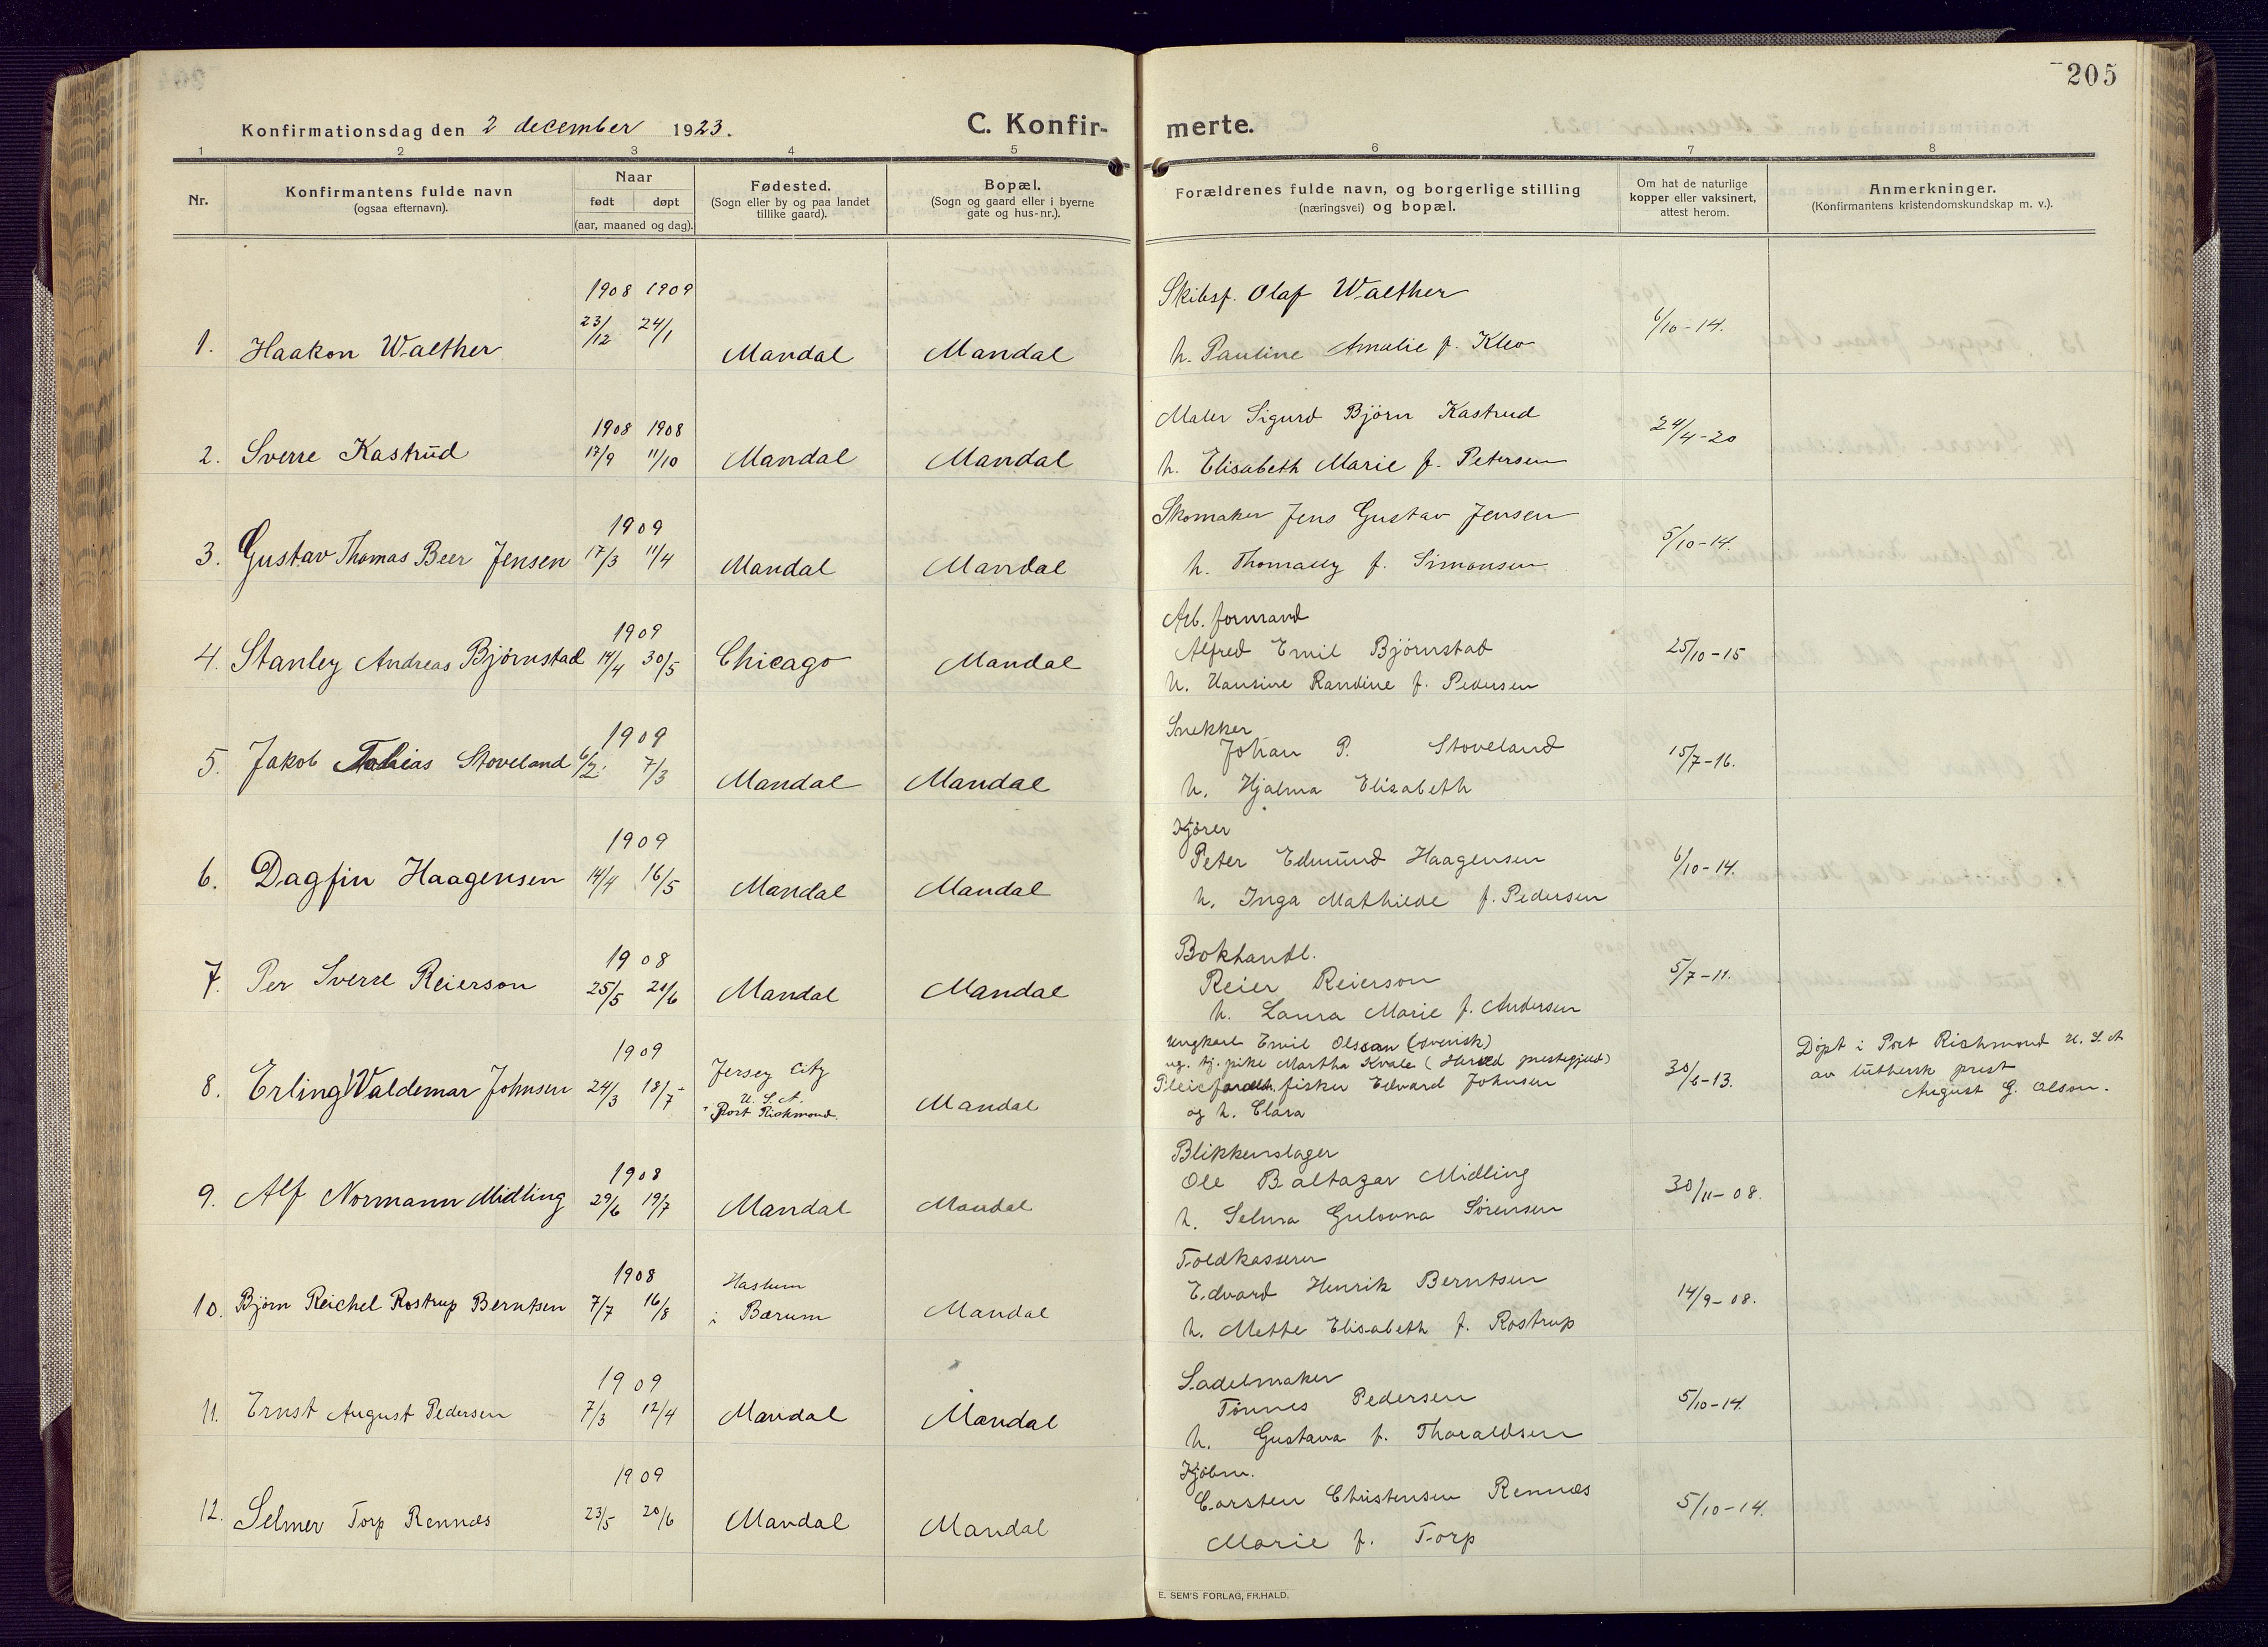 205
Konfirmationsdag den 2 december 1923.
C. Konfir-
merte.
1 2 3 4 5 6 7 8
Nr.
Konfirmantens fulde navn
(ogsaa efternavn).
Naar
født døpt
(aar, maaned og dag).
Fødested.
(Sogn eller by og paa landet
tillike gaard).
Bopæl.
(Sogn og gaard eller i byerne
gate og hus-nr.).
Forældrenes fulde navn, og borgerlige stilling
(næringsvei) og bopæl.
Om hat de naturlige
kopper eller vaksinert,
attest herom.
Anmerkninger.
(Konfirmantens kristendomskundskap m. v.).
1908 1909
1. Haakon Walther 23/12 24/1 Mandal Mandal
Skibsf. Olaf Walther
h. Pauline Amalie f. Klev
6/10-14.
1908 1908
2. Sverre Kastrud 17/9 11/10 Mandal Mandal
Maler Sigurd Bjørn Kastrud
h. Elisabeth Marie f. Petersen
24/4-20
1909
3. Gustav Thomas Beer Jensen 17/3 11/4 Mandal Mandal
Skomaker Jens Gustav Jensen
h. Thomally f. Simonsen
5/10-14.
1909
4. Stanley Andreas Bjørnstad 14/4 30/5 Chicago Mandal
Arb. formand
Alfred Emil Bjørnstad
h. Hansine Randine f. Pedersen
25/10-15
1909
5. Jakob Tobias Stoveland 6/2. 7/3 Mandal Mandal
Snekker
Johan P. Stoveland
h. Hjalma Elisabeth
15/7-16.
1909
6. Dagfin Haagensen 14/4 16/5 Mandal Mandal
Kjører
Peter Edmund Haagensen
h. Inga Mathilde f. Pedersen
6/10-14.
1908
7. Per Sverre Reierson 25/5 21/6 Mandal Mandal
Bokhandl.
Reier Reierson
h. Laura Marie f. Andersen
5/7-11.
1909
8. Erling Valdemar Johnsen 24/3 18/7
Jersey City
U. S. A.
Port Richmond.
Mandal
Ungkarl Emil Olsson (svensk)
ug. tj. pike Martha Kvale ( prestegjeld)
Pleieforældr. fisker Edvard Johnsen
og h. Clara
30/6-13.
Døpt i Port Richmond U. S. A
av luthersk prest
August G. Olson.
1908
9. Alf Normann Midling 29/6 19/7 Mandal Mandal
Blikkenslager
Ole Baltazar Midling
h. Selma Gulovna Sørensen
30/11-08.
1908
10. Bjørn Reichel Rostrup Berntsen 7/7 16/8
Haslum
i Bærum
Mandal
Toldkasserer
Edvard Henrik Berntsen
h. Mette Elisabeth f. Rostrup
14/9-08.
1909
11. Ernst August Pedersen 7/3 12/4 Mandal Mandal
Sadelmaker
Tønnes Pedersen
h. Gustava f. Thoraldsen
5/10-14.
1909
12. Selmer Torp Rennæs 23/5 20/6 Mandal Mandal
Kjøbm.
Carsten Christensen Rennæs
Marie f. Torp
5/10-14.
E. SEM'S FORLAG, FR.HALD.